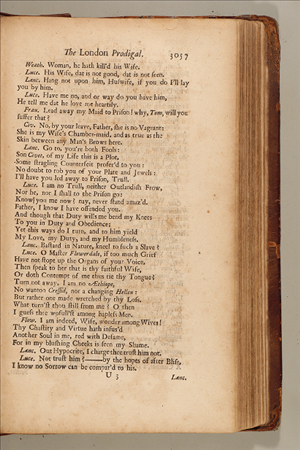 The London Prodigal. 3057
Weath. Woman, he hath kill'd his Wife.
Luce. His Wife, dat is not good, dat is not seen.
Lanc. Hang not upon him, Huswife, if you do I'll lay
you by him.
Luce. Have me no, and or way do you have him,
He tell me dat he love me heartily.
Fran. Lead away my Maid to Prison! why, Tom, will you
suffer that?
Civ. No, by your leave, Father, she is no Vagrant:
She is my Wife's Chamber-maid, and as true as the
Skin between any Man's Brows here.
Lanc. Go to, you're both Fools:
Son Civet, of my Life this is a Plot,
Some stragling Counterfeit profer'd to you:
No doubt to rob you of your Plate and Jewels:
I'll have you led away to Prison, Trull.
Luce. I am no Trull, neither Outlandish Frow,
Nor he, nor I shall to the Prison go:
Know you me now? nay, never stand amaz'd.
Father, I know I have offended you,
And though that Duty wills me bend my Knees
To you in Duty and Obedience;
Yet this ways do I turn, and to him yield
My Love, my Duty, and my Humbleness.
Lanc. Bastard in Nature, kneel to such a Slave?
Luce. O Master Flowerdale, if too much Grief
Have not stopt up the Organs of your Voice,
Then speak to her that is thy faithful Wife,
Or doth Contempt of me thus tie thy Tongue?
Turn not away, I am no Æthiope,
No wanton Cressid, nor a changing Hellen:
But rather one made wretched by thy Loss.
What turn'st thou still from me? O then
I guess thee wofull'st among hapless Men.
Flow. I am indeed, Wife, wonder among Wives!
Thy Chastity and Virtue hath infus'd
Another Soul in me, red with Defame,
For in my blushing Cheeks is seen my Shame.
Lanc. Out Hypocrite, I charge thee trust him not.
Luce. Not trust him? by the hopes of after Bliss,
I know no Sorrow can be compar'd to his.
U 3 Lanc.